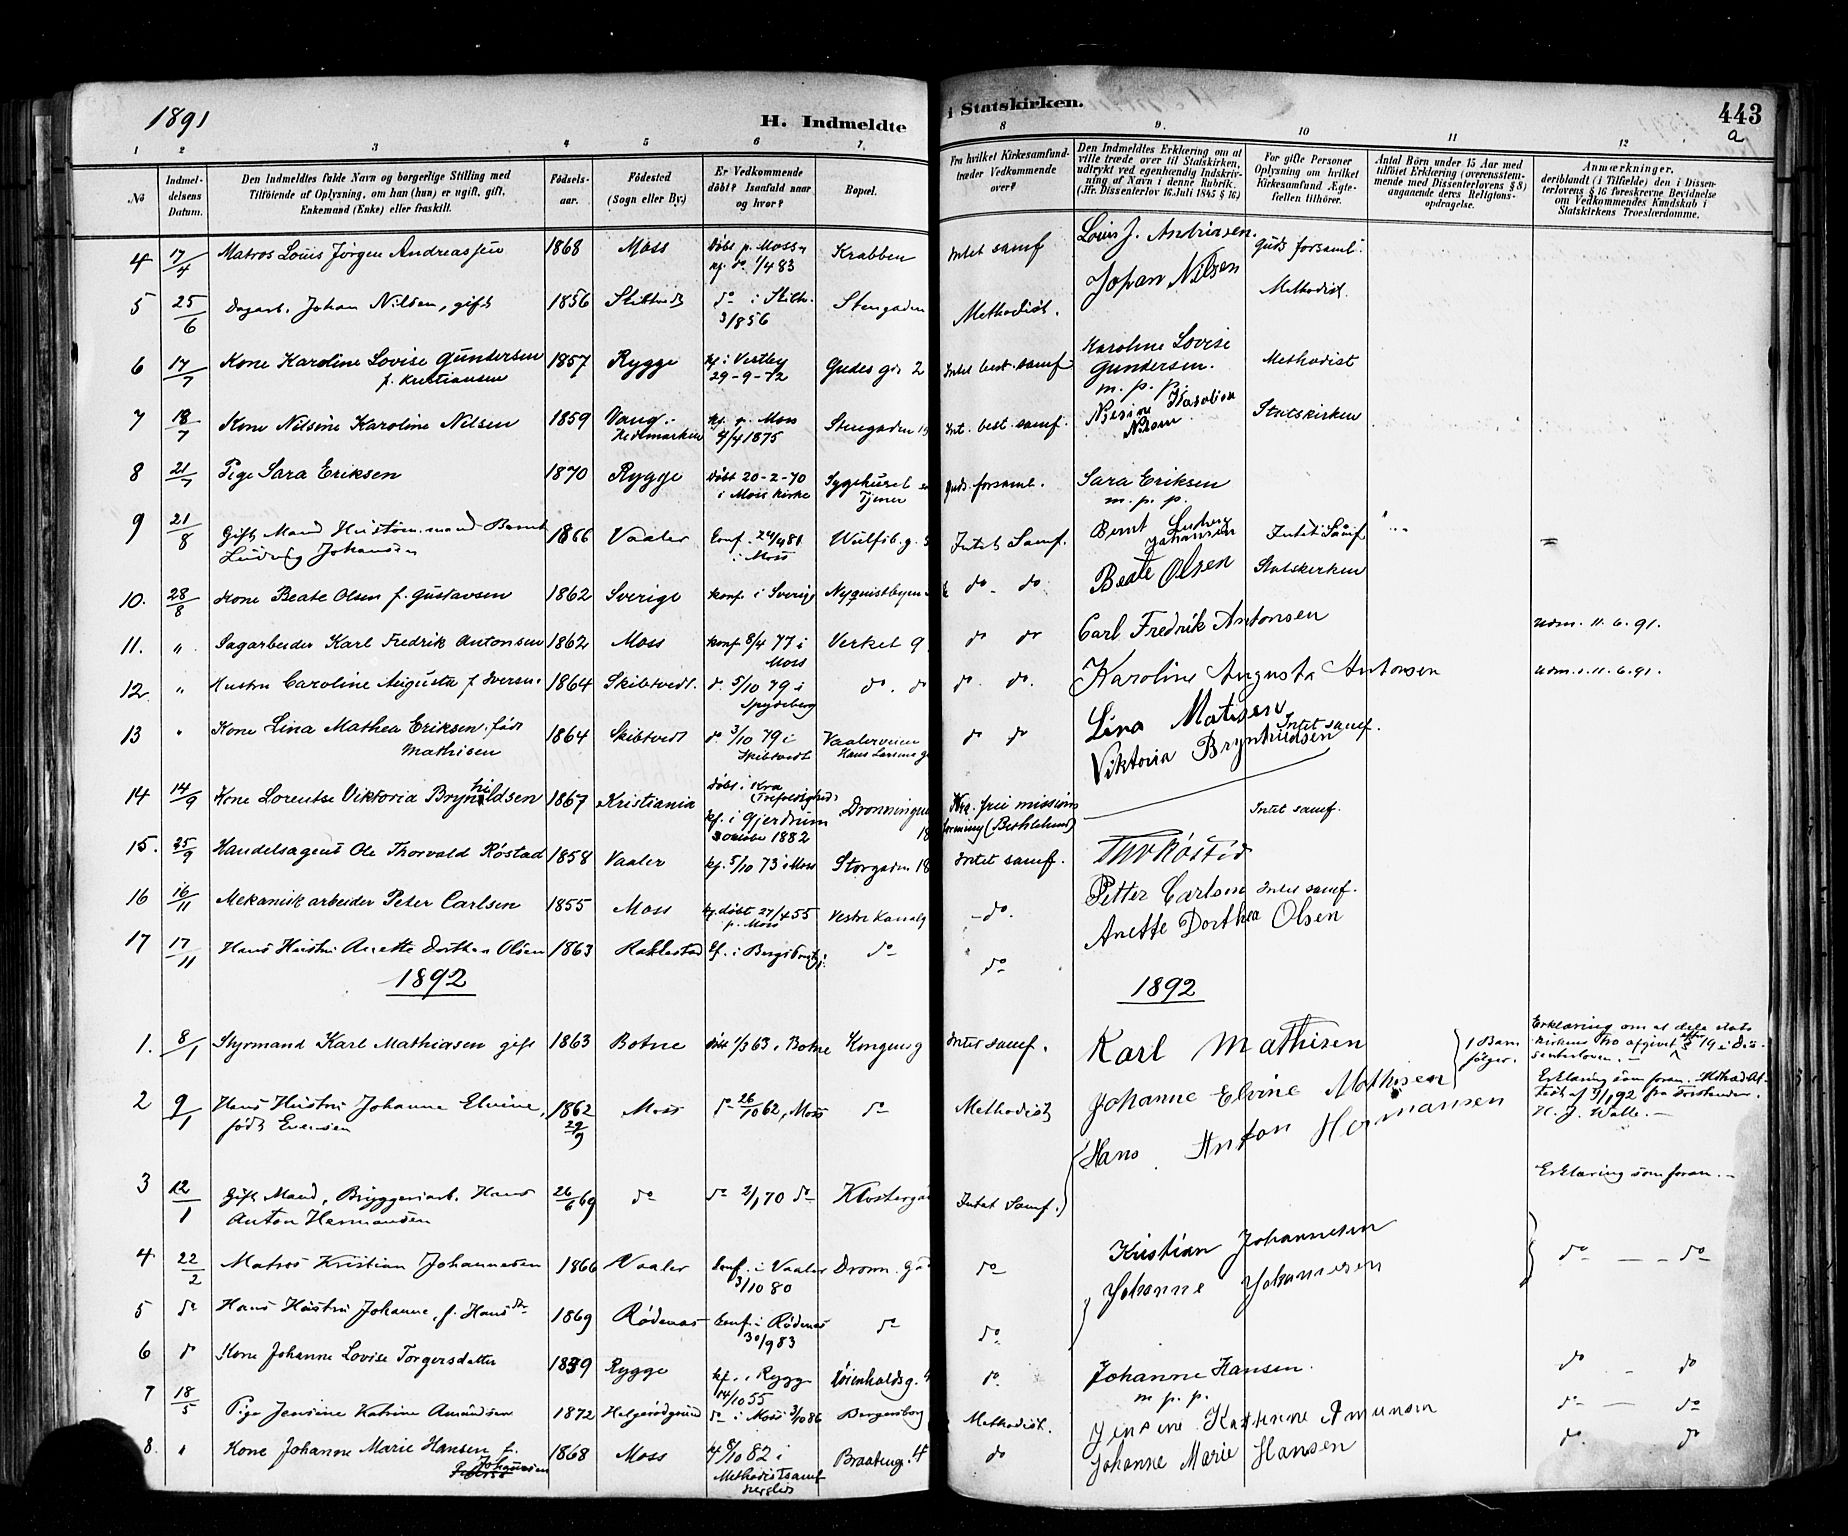 1891
H. Indmeldte
i Statskirken.
443
a
1 2 3 4 5 6 7. 8 9. 10 11 12
No
Indmeldelsens Datum.
Den Indmeldtes fulde Navn og borgerlige Stilling med
Tilføiende af Oplysning, om han (hun) er ugift, gift,
Enkemand (Enke) eller fraskilt.
Fødselsaar.
Fødested
(Sogn eller By.)
Er Vedkommende
døbt? Isaafald naar
og hvor?
Bopæl.
Fra hvilket Kirkesamfund
træder Vedkommende
over?
Den Indmeldtes Erklæring om at
ville træde over til Statskirken,
udtrykt ved egenhændig Indskrivning
af Navn i denne Rubrik.
(Jfr. Dissenterlov 16 Juli 1845 § 16)
For gifte Personer
Oplysning om hvilket
Kirkesamfund Ægtefællen
tilhører.
Antal Børn under 15 Aar med
tilføiet Erklæring (overensstemmende
med Dissenterlovens § 8)
angaaende deres Religionsopdragelse.
Anmærkninger,
deriblandt (i Tilfælde) den i Dissenterlovens
§ 16 foreskrevne Bevidnelse
om Vedkommendes Kundskab i
Statskirkens Troeslærdomme.
4 17/4 Matros Louis Jørgen Andreassen 1868 Moss Døbt p. Moss kf. do 1/4 83 Krabben Intet samf Louis J. Andriasen. Guds forsaml.
5 25/6 Dagarb. Johan Nilsen, gift 1856 Skibtvedt do i Skibtv. 3/1856 Stengaden Methodist. Johan Nilsen Methodist.
6 17/7 Kone Karoline Lovise Gundersen f. Kristiansen 1857 Rygge kf. i Vestby 29-9-72 Gudes gd. 2 Intet best. samf Karoline Lovise Gundersen. m. p. p. Methodist
7 18/7 Kone Nilsine Karoline Nilsen 1859 Vang. Hedemarken kf. p. Moss 4/4 1875 Stengaden Int. best. samf. Nilsine Karoline Nilsen Statskirken
8 21/7 Pige Sara Eriksen 1870 Rygge Døbt 20-2-70 i Moss kirke Sygehuset Tjener Guds forsaml. Sara Eriksen m. p. p.
9 21/8 Gift Mand Hustømmand Bernt Ludvig Johansen 1866 Vaaler Conf. 24/4 81 i Moss Wulfsb. g. Intet Samf. Bernt Ludvig Johansen Intet Samf
10. 28/8 Kone Beate Olsen f. Gustavsen 1862 Sverige konf. i Sverig Nyquistbyen do - do Beate Olsen Statskirken
11. " Sagarbeider Karl Fredrik Antonsen 1862 Moss konf 8/4 77 i Moss Verket 9 do do Carl Fredrik Antonsen Udm. 11. 6. 91.
12 " Hustru Caroline Augusta f. Iversen 1864 Skibtvedt. do 5/10 79 i Spydeberg do. do do. do. Karoline Augusta Antonsen Udm. 11. 6. 91.
13 " Kone Lina Mathea Eriksen. født Mathisen 1864 Skibtvedt do 3/10 79 i Skibtvedt Vaalerveien Hans Larsens g do do Lina Matisen Intet samf.
14 14/9 Kone Lorentse Viktoria Brynhildsen 1867 Kristiania døbt i Kra (Trefoldighed) kf. i Gjerdrum 3 october 1882 Dronningens 18 Kra. frei missions forening (Bethlehem) Viktoria Brynhildsen Intet samf.
15. 25/9 Handelsagent Ole Thorvald Røstad 1858 Vaaler kf. 5/10 73 i Moss Storgaden 18 Intet samf. Th. Røstad
16 16/11 Mekanisk arbeider Peter Carlsen 1855 Moss døbt 27/4 55 p. Moss Vestre Kanalg - do. Petter Carlsen Intet samf.
17 17/11 Hans Hustru Anette Dorthea Olsen 1863 Rakkestad do do Anette Dorthea Olsen
1892
1892
1. 8/1 Styrmand Karl Mathiasen gift 1863 Botne Døbt 1/3 63 i Botne Kongensg Intet samf. Karl Mathisen 1 Barn følger. Erklæring om at dele statskirkens tro afgivet efter § 19 i Dissenterloven.
2 9/1 Hans Hustru Johanne Elvine, født Evensen 1862 29/9 Moss do 26/10 62, Moss do Methodist Johanne Elvine Mathisen Erklæring som foran. Attest af 5/1 92 fra Forstander H. J. Walle.
3 12/1 Gift Mand, Bryggeriarb. Hans Anton Hermansen 26/6 69 do do 2/1 70 do Klostergd Intet Samf. Hans Anton Hermansen Erklæring som foran.
4 22/2 Matros Kristian Johannesen 1866 Vaaler Conf. i Vaaler 3/10 80 Dronn. gd do Kristian Johannesen do - - do
5 do Hans Hustru Johanne, f. Hans dr. 1869 Rødenæs Conf. i Rødenæs 30/9 83 do do Johanne Johannesen
6 do Kone Johanne Lovise Torgersdatter 1839 Rygge kf. i Rygge 14/10 55 do. Johanne Hansen. m. p. p. do - do
7 18/5 Pige Jensine Katrine Amundsen 1872 Helgerødgrund do i Moss 3/10 86 Bergersborg Methodist. Jensine Kathrine Amunsen do - do
8. " Kone Johanne Marie Hansen f. Johannesen 1868 Moss kf 8/10 82 i Methodistsamf. Braateng. 4 do Johanne Marie Hansen do. do